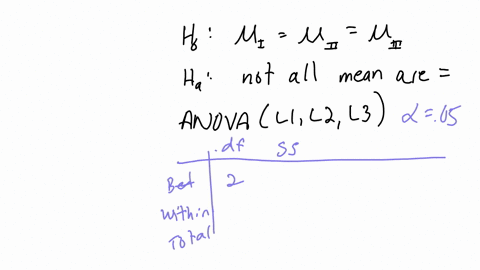 H₀: μ_I = μ_II = μ_III
Hₐ: not all mean are =
ANOVA (L1, L2, L3) α = .05
df SS
Bet 2
Within
Total